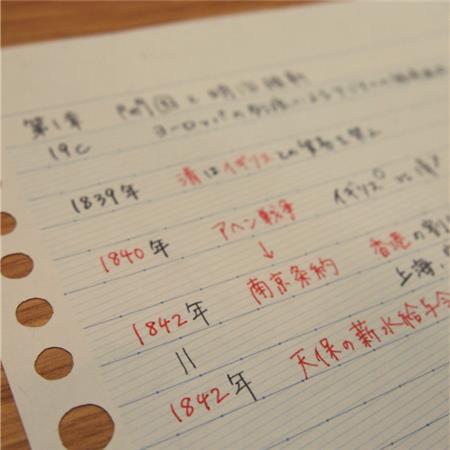 第1章 開国と明治維新
19C ヨーロッパの列強によるアジアへの
1839年 清はイギリスとの貿易を禁止
1840年 アヘン戦争 イギリス vs 清
↓
1842年 南京条約 香港の割
上海,
||
1842年 天保の薪水給与令